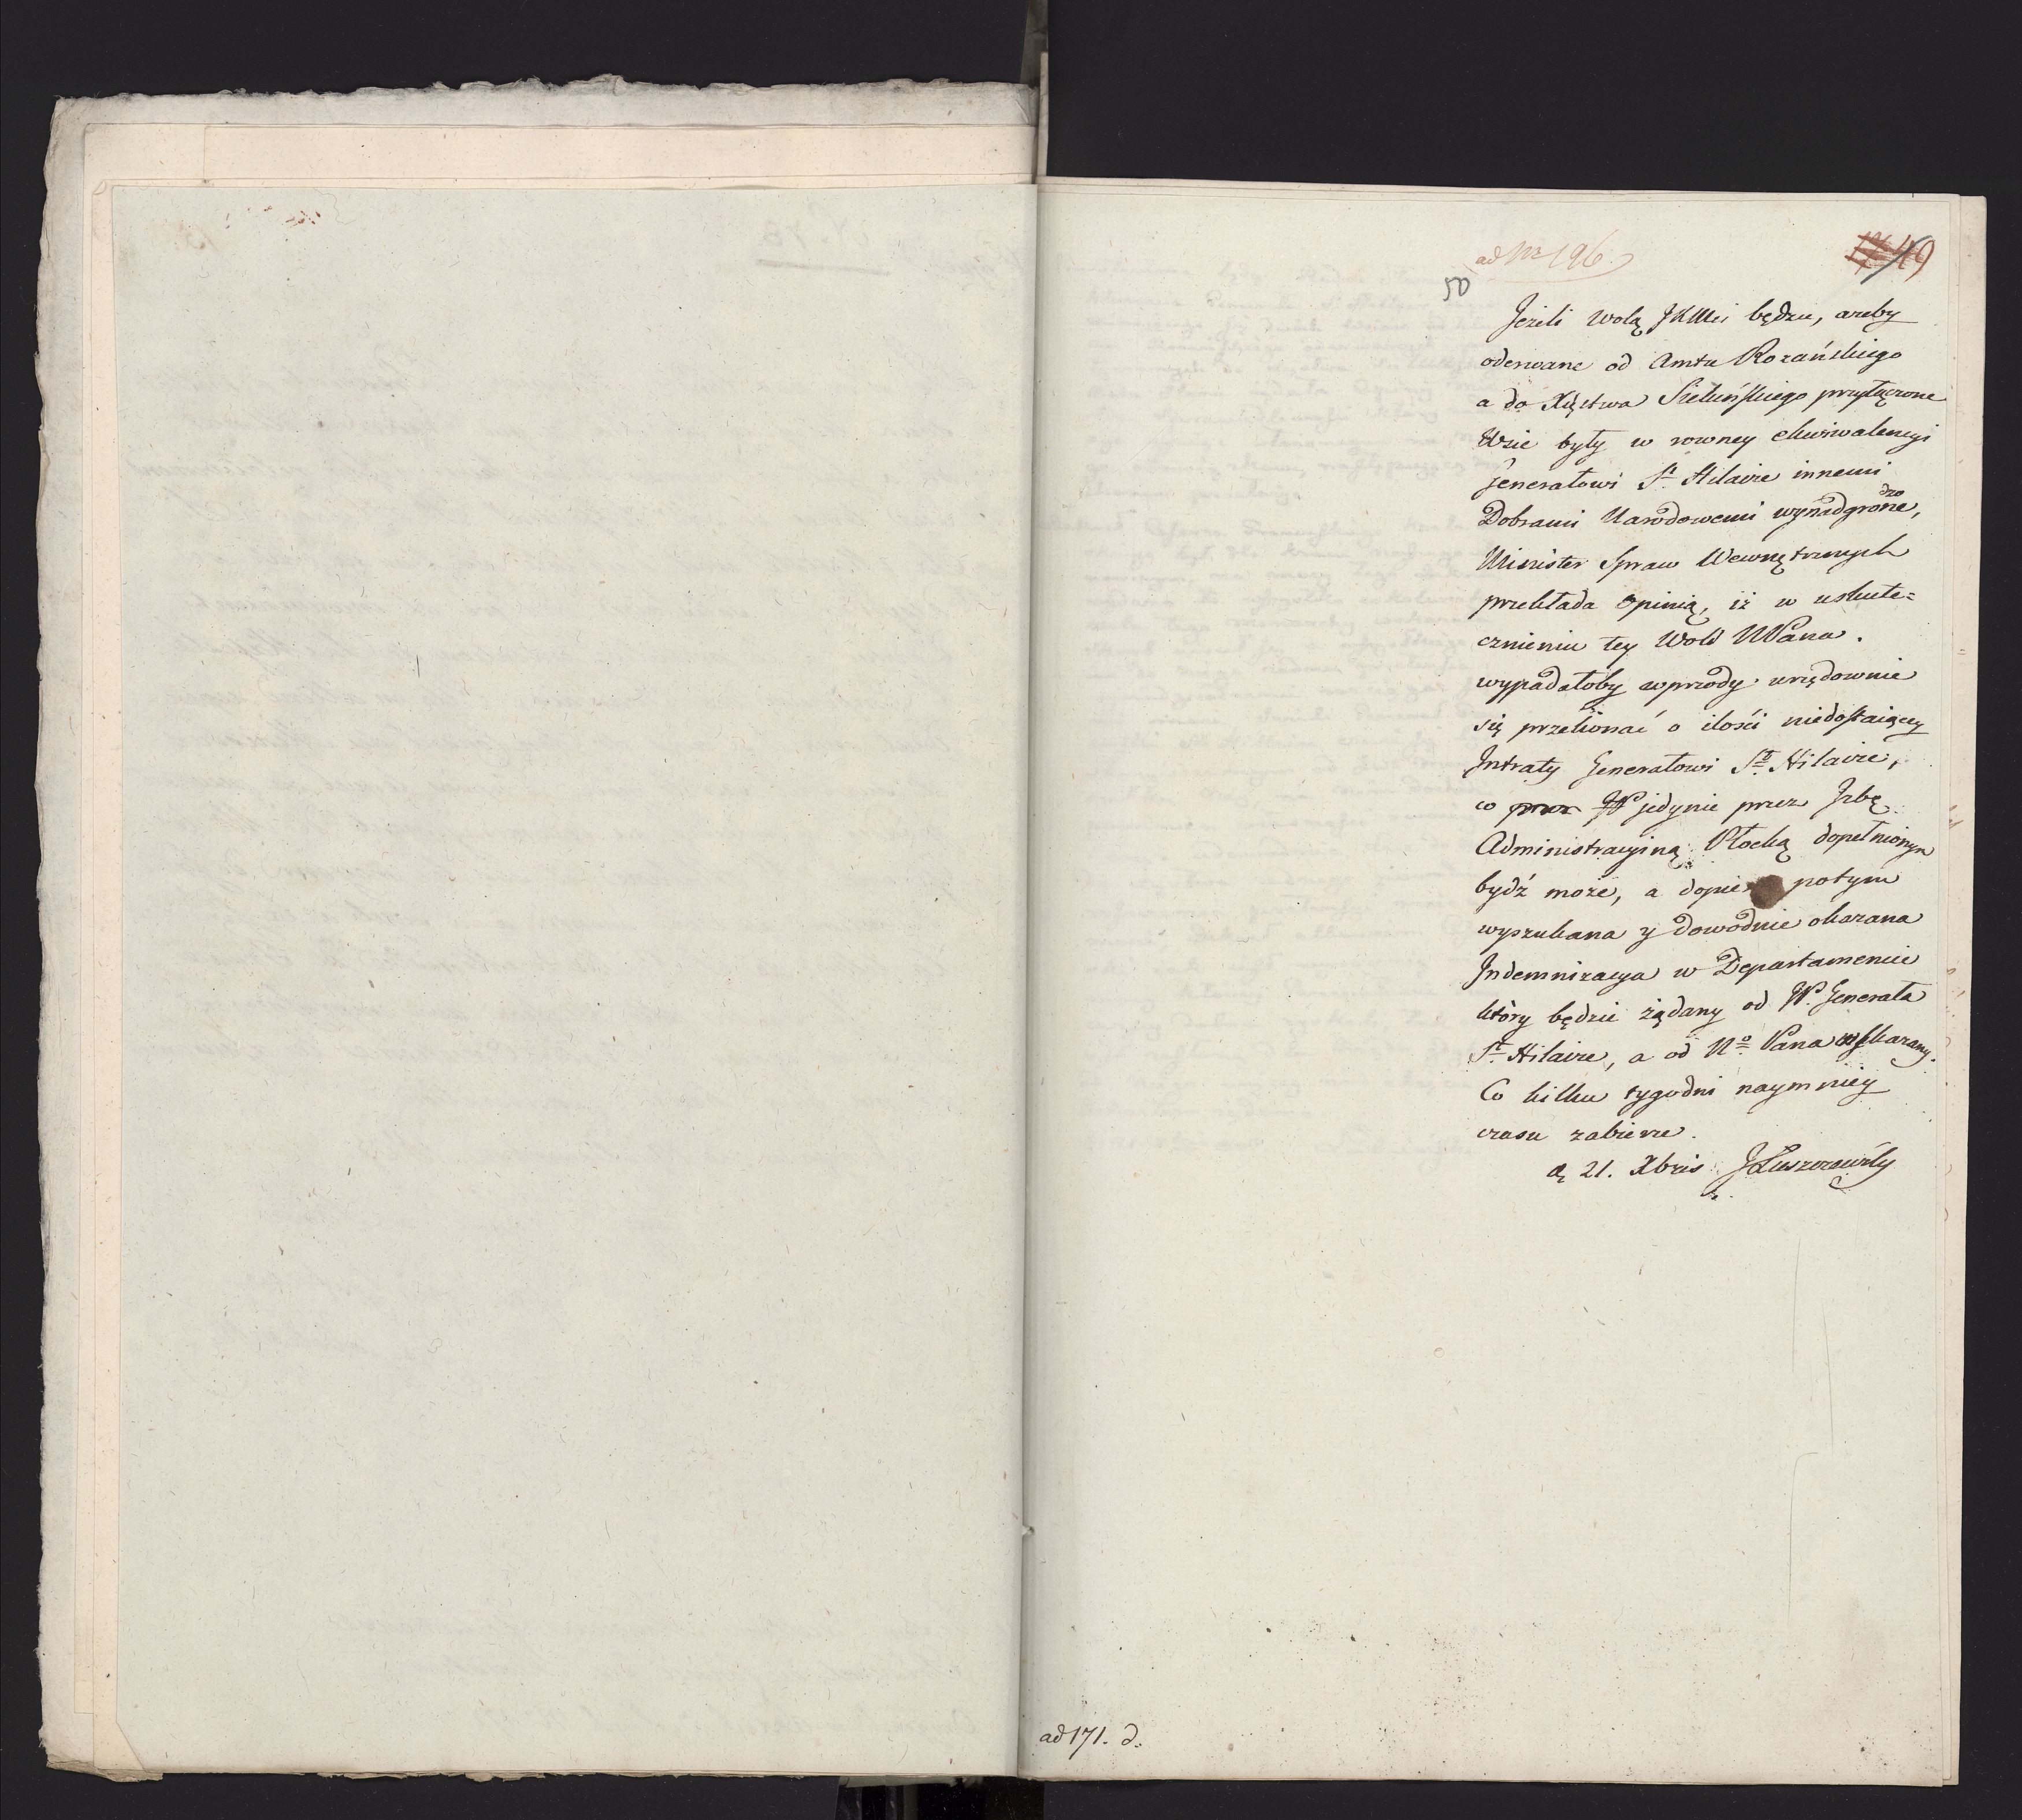 ad Nr 196.
49
50
Jeżeli wolą JKMci będzie, ażeby
oderwane od Amtu Rozańskiego
a do Xięstwa Sieluńskiego przyłączone
Wsie były w rowney ekwiwalencyi
Jenerałowi St. Hilaire innemi
Dobrami Narodowemi wynadgrodzone,
Minister Spraw Wewnętrznych
przekłada opinią, iż w uskute=
cznieniu tey Woli NPana.
wypadałoby wprzódy urzędownie
się przekonać o ilości niedostaiącey
Intraty Generałowi St. Hilaire,
co jedynie przez Izbę
Administracyiną Płocką dopełnionym
bydź może, a dopiero potym
wyszukana y dowodnie okazana
Indemnizacya w Departamencie
który będzie żądany od JP. Generała
St. Hilaire, a od No. Pana wskazany.
Co kilku tygodni naymniey
czasu zabierze.
d. 21. Xbris JŁuszczewski
ad 171. d.